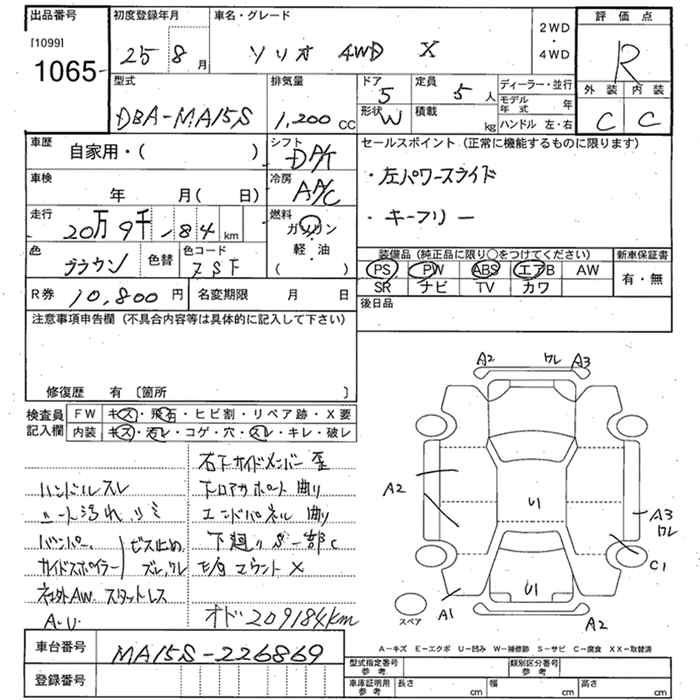 出品番号 初度登録年月 車名・グレード 2WD・4WD 評価点
[1099]
1065 25 8月 ソリオ 4WD X R
外装 内装
C C
型式 排気量 ドア 5 定員 5人 ディーラー・並行
DBA-MA15S 1,200 cc 形状 W 積載 kg モデル年式 年
ハンドル 左・右
車歴 自家用・( ) シフト DA/T セールスポイント(正常に機能するものに限ります)
車検 年 月( 日) 冷房 A/C 左パワースライド
走行 20万9千184km 燃料 ガソリン・軽油( ) キーフリー
色 ブラウン 色替 色コード ZSF 装備品(純正品に限り○をつけてください) 新車保証書
PS PW ABS エアB AW 有・無
R券 10,800円 名変期限 月 日 SR ナビ TV カワ
注意事項申告欄(不具合内容等は具体的に記入して下さい) 後日品
修復歴 有〔箇所 〕
検査員記入欄 FW キズ・飛石・ヒビ割・リペア跡・X要
内装 キズ・汚レ・コゲ・穴・スレ・キレ・破レ
右下サイドメンバー歪
ハンドルスレ
シート汚れ シミ エンドパネル曲り
バンパー、 ビス止め 下廻りサ一部C
サイドスポイラー ズレ、ワレ E/gマウントX
社外AW スタットレス
A.U. オド209184km
A2 ワレ A3
A2 U1 A3 ワレ
C1
スペア A1 U1 A2
車台番号 MA15S-226869
登録番号
A-キズ E-エクボ U-凹み W-補修跡 S-サビ C-腐食 XX-取替済
型式指定番号 参考 類別区分番号 参考
車庫証明用 参考 長さ cm 幅 cm 高さ cm